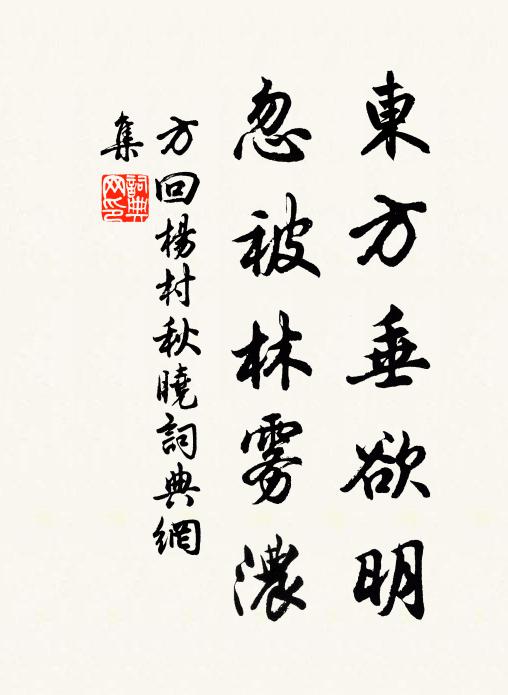 東方垂欲明
忽被林雾濃
方回楊村秋曉詞典網
集
詞典
网印